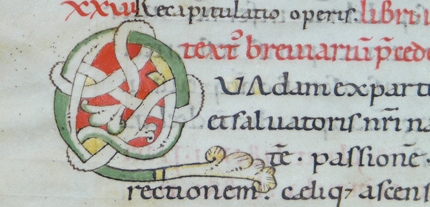 xxviii Recapitulatio operis. libri
textꝰ breviariū p̄cede
QUAdam ex parte
et salvatoris nr̄i na
tē · passione ·
rectionem. cęliqꝫ ascens